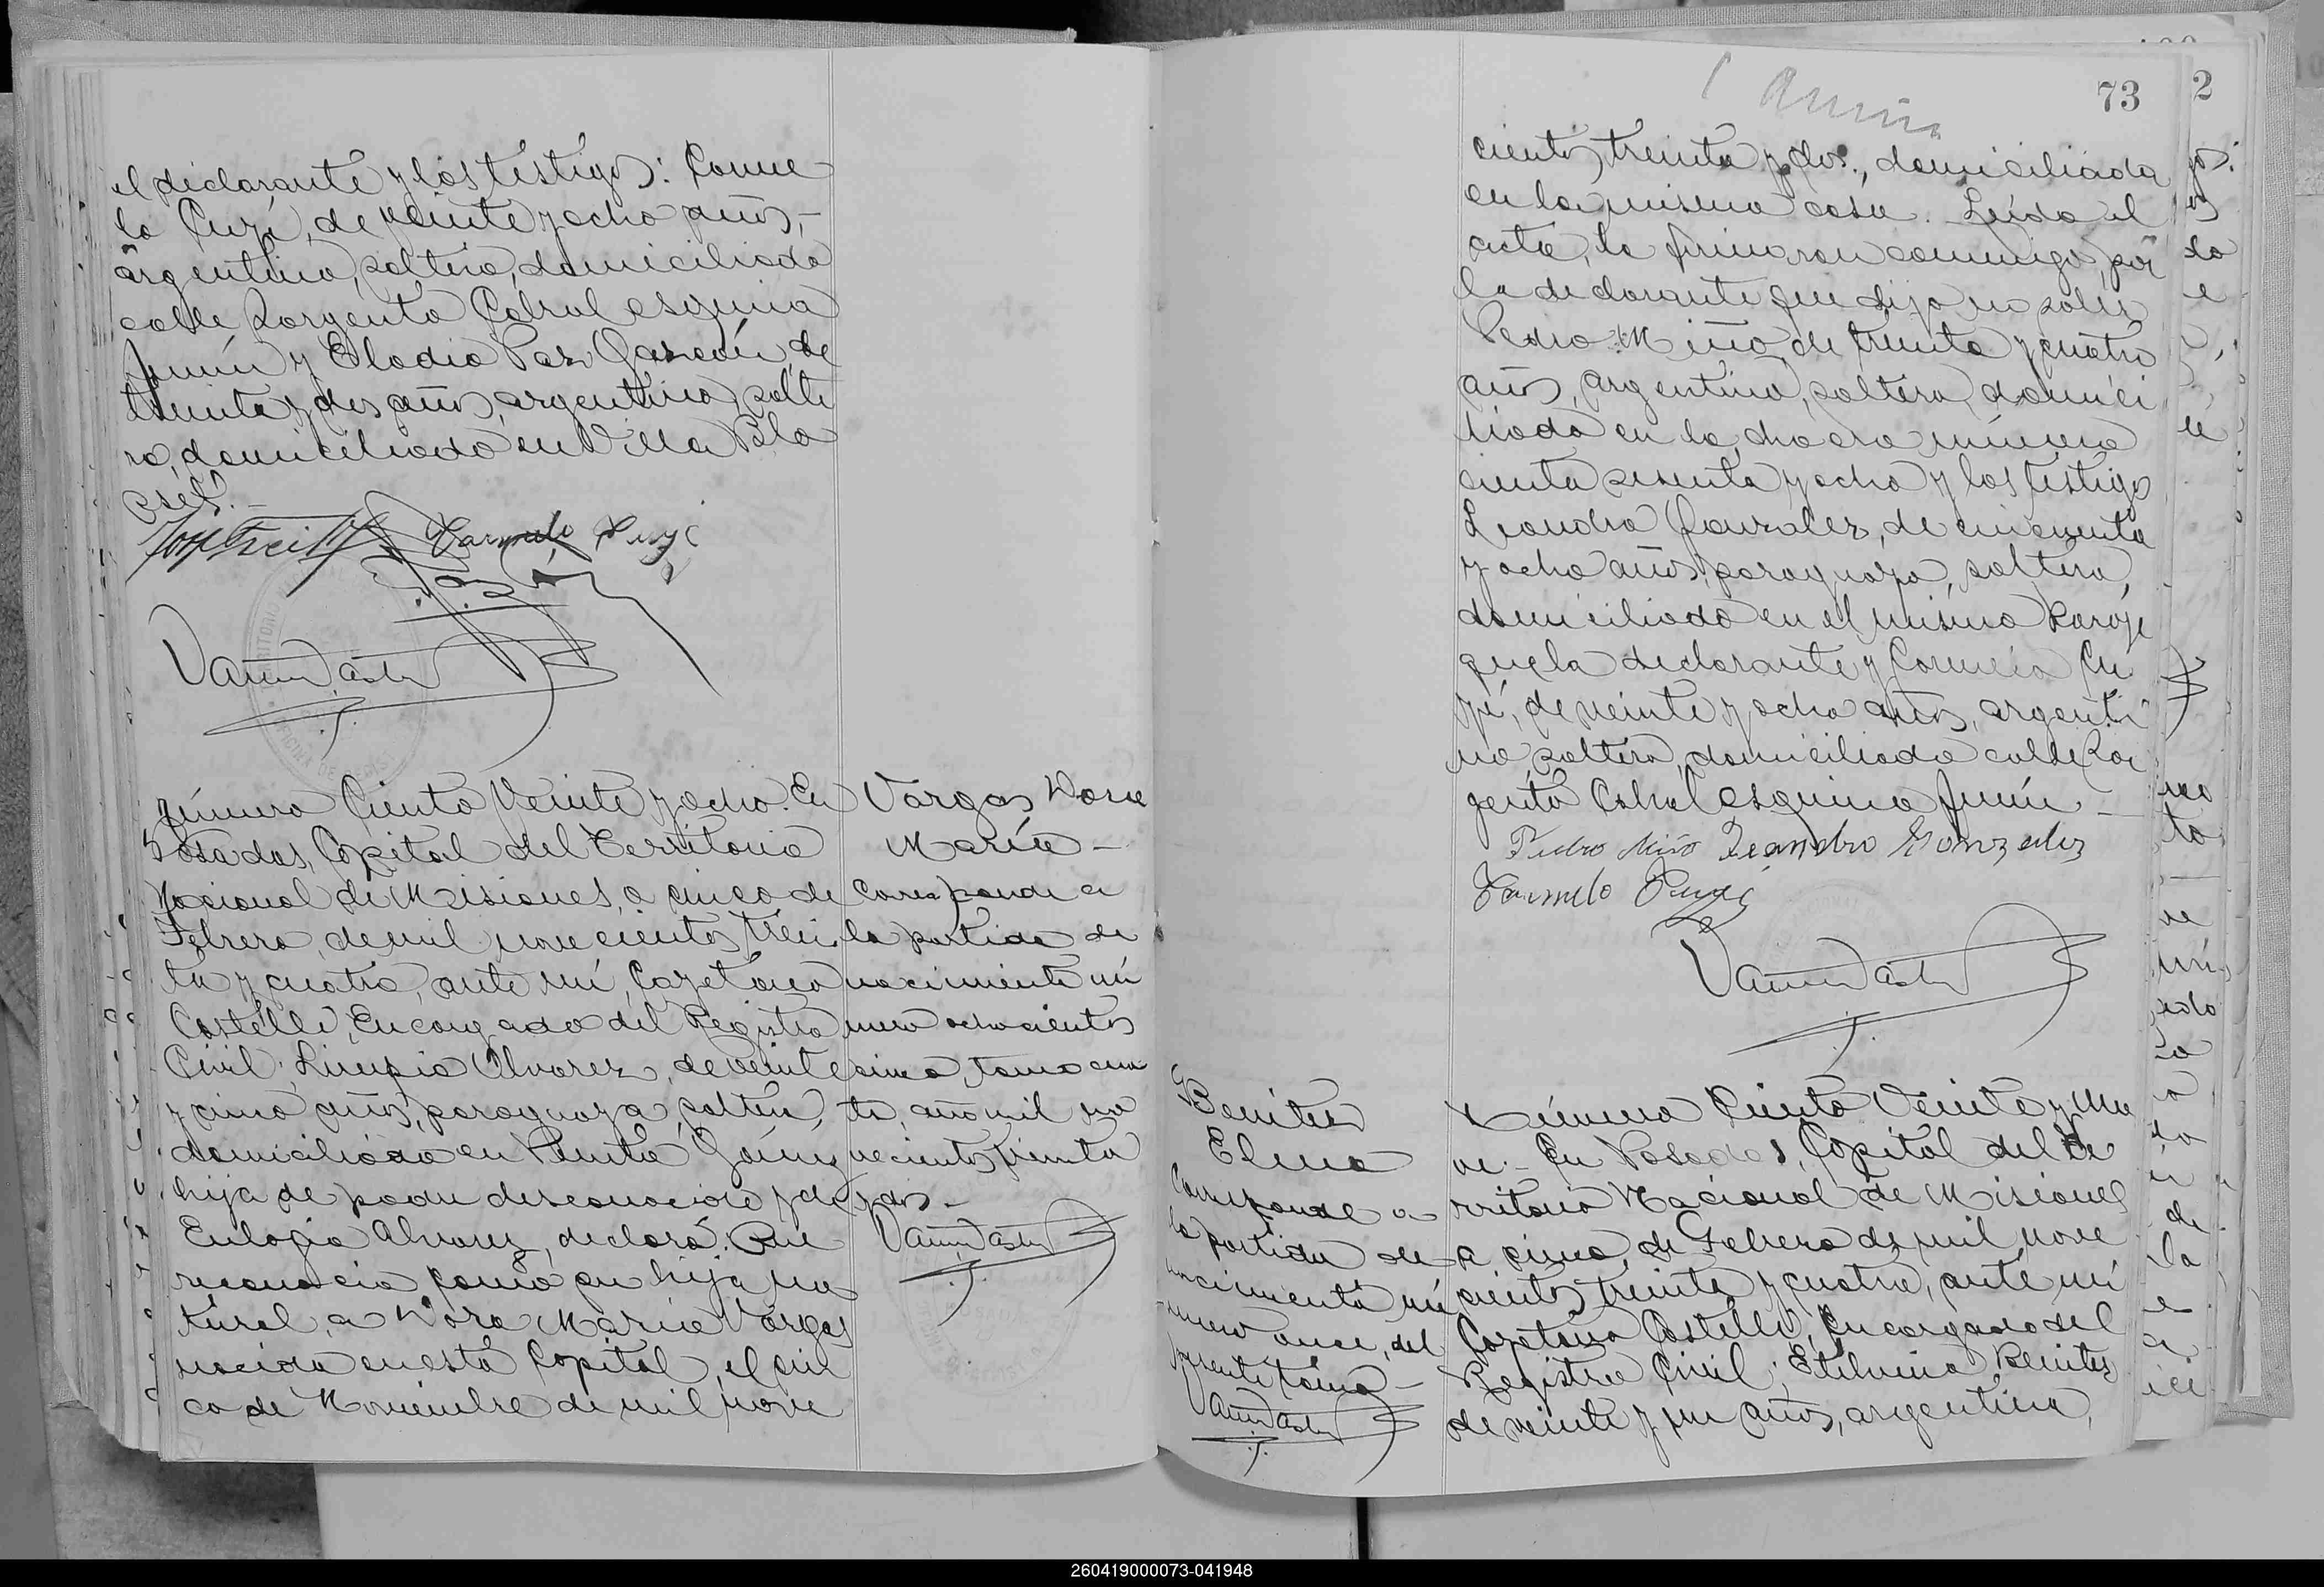 el declarante y los testigos: Carme
lo Puyi, de veinte y ocho años,-
argentino, soltero, domiciliado
calle Sargento Cabral esquina
Junín y Elodio Paz Garzón, de
treinta y dos años, argentino, solte
ro, domiciliado en Villa Bla
Carmelo Puyi
Número Ciento Veinte y ocho. En
Posadas, Capital del Territorio
Nacional de Misiones, a cinco de
Febrero, de mil novecientos trein
ta y cuatro, ante mí, Cayetano
Castelli, Encargado del Registro
Civil; Limpia Alvarez, de veinte
y cinco años, paraguaya, soltera,
domiciliada en Puente
hija de padre desconocido y de
Eulogia Alvarez, declaró: Que
reconocia como su hija na
tural, a Dora María Vargas
nacida en esta Capital, el cin
co de Noviembre de mil nove
Vargas Dora
María-
Corresponde a
la partida de
nacimiento nú
mero ochocientos
cinco, tomo cua
to, año mil no
vecientos treinta
y dos.-
73
2
cientos treinta y dos., domiciliada
en la misma casa. Leída el
acta, la firmaron conmigo, por
la declarante que dijo no saber
Pedro Miño, de treinta y cuatro
años, argentino, soltero, domici
liado en la chacra número
ciento sesenta y ocho y los testigos
Leandro Gonzalez, de cincuenta
y ocho años, paraguayo, soltero,
domiciliado en el mismo paraje
que la declarante y Carmelo Pu
yi, de veinte y ocho años, argenti
no, soltero, domiciliado calle Sar
gento Cabral esquina Junín.-
Pedro Miño Leandro Gonzalez
Carmelo Puyi
Benites
Elena
Corresponde a
la partida de
nacimiento nú
mero once, del
presente tomo-
Número Ciento Veinte y Nue
ve.- En Posadas, Capital del Te
rritorio Nacional de Misiones
a cinco, de Febrero de mil nove
cientos treinta y cuatro, ante mí
Cayetano Castelli, Encargado del
Registro Civil; Etelvina Benites
de veinte y un años, argentina,
260419000073-041948